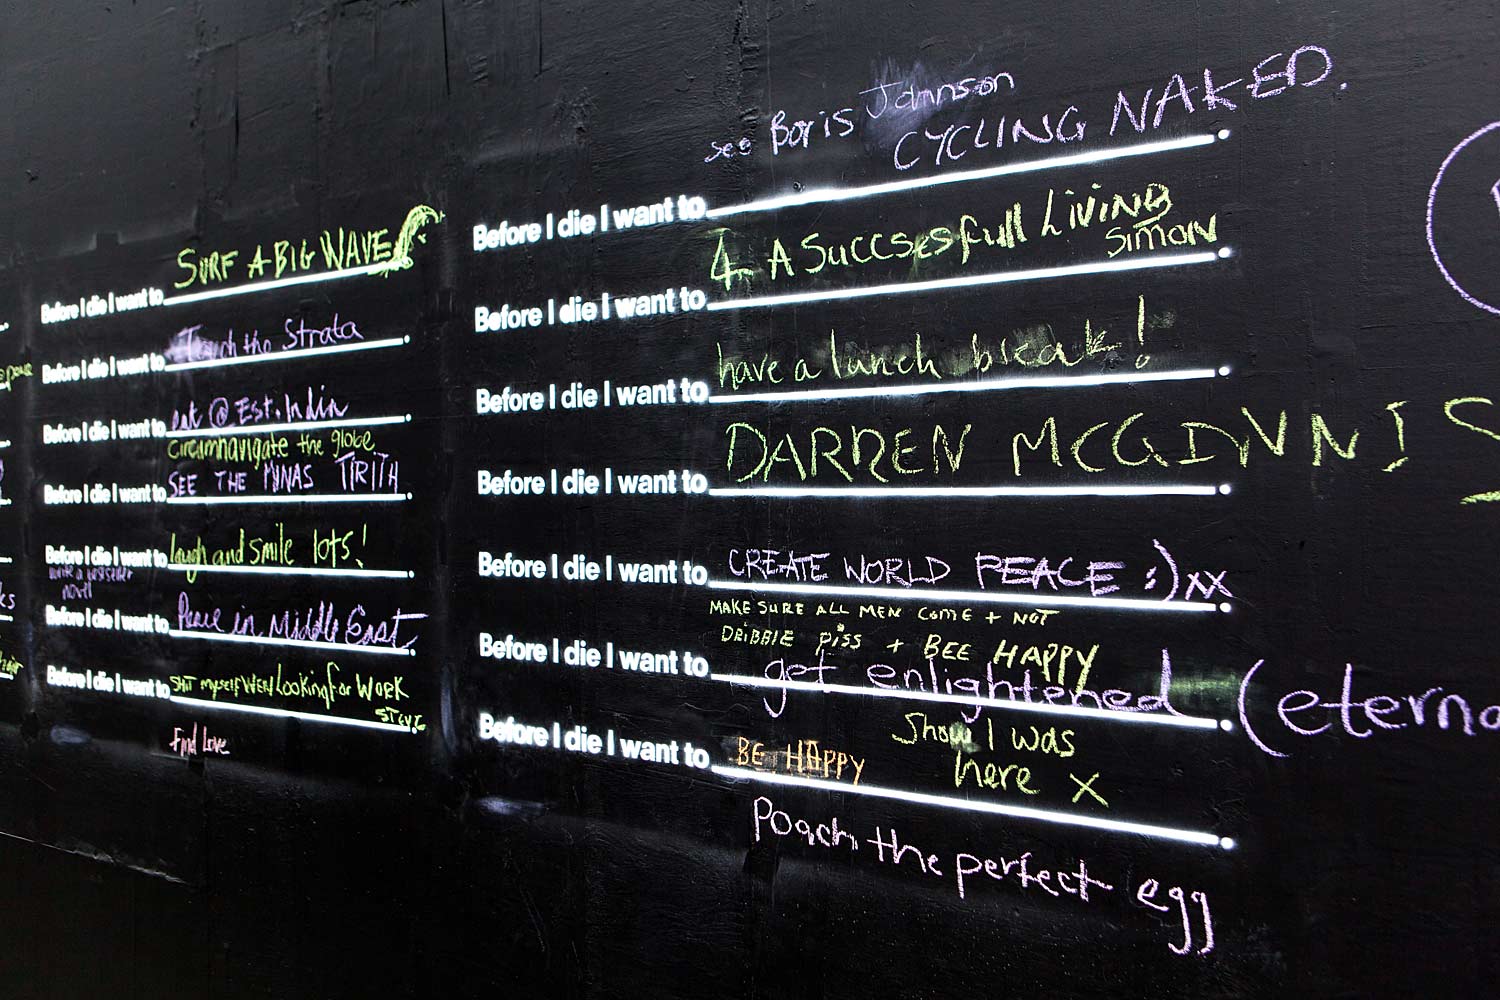 SURF A BIG WAVE
Before I die I want to
the Strata
Before I die I want to
eat @ Est. India
Before I die I want to
circumnavigate the globe
SEE THE MINAS TIRITH
Before I die I want to
laugh and smile lots!
Before I die I want to
write a bestseller
novel
Peace in Middle East
Before I die I want to
SHIT MYSELF WEN LOOKING FOR WORK
Before I die I want to
Find Love
see Boris Johnson
CYCLING NAKED.
Before I die I want to
4 A SUCCSESfull LiViNG
SIMON
Before I die I want to
have a lunch break!
Before I die I want to
DARREN MCGINNIS
Before I die I want to
CREATE WORLD PEACE :) xx
Before I die I want to
MAKE SURE ALL MEN COME + NOT
DRIBBLE PISS + BEE HAPPY
get enlightened (eterna
Before I die I want to
Show I was
BE HAPPY here X
Before I die I want to
Poach the perfect egg